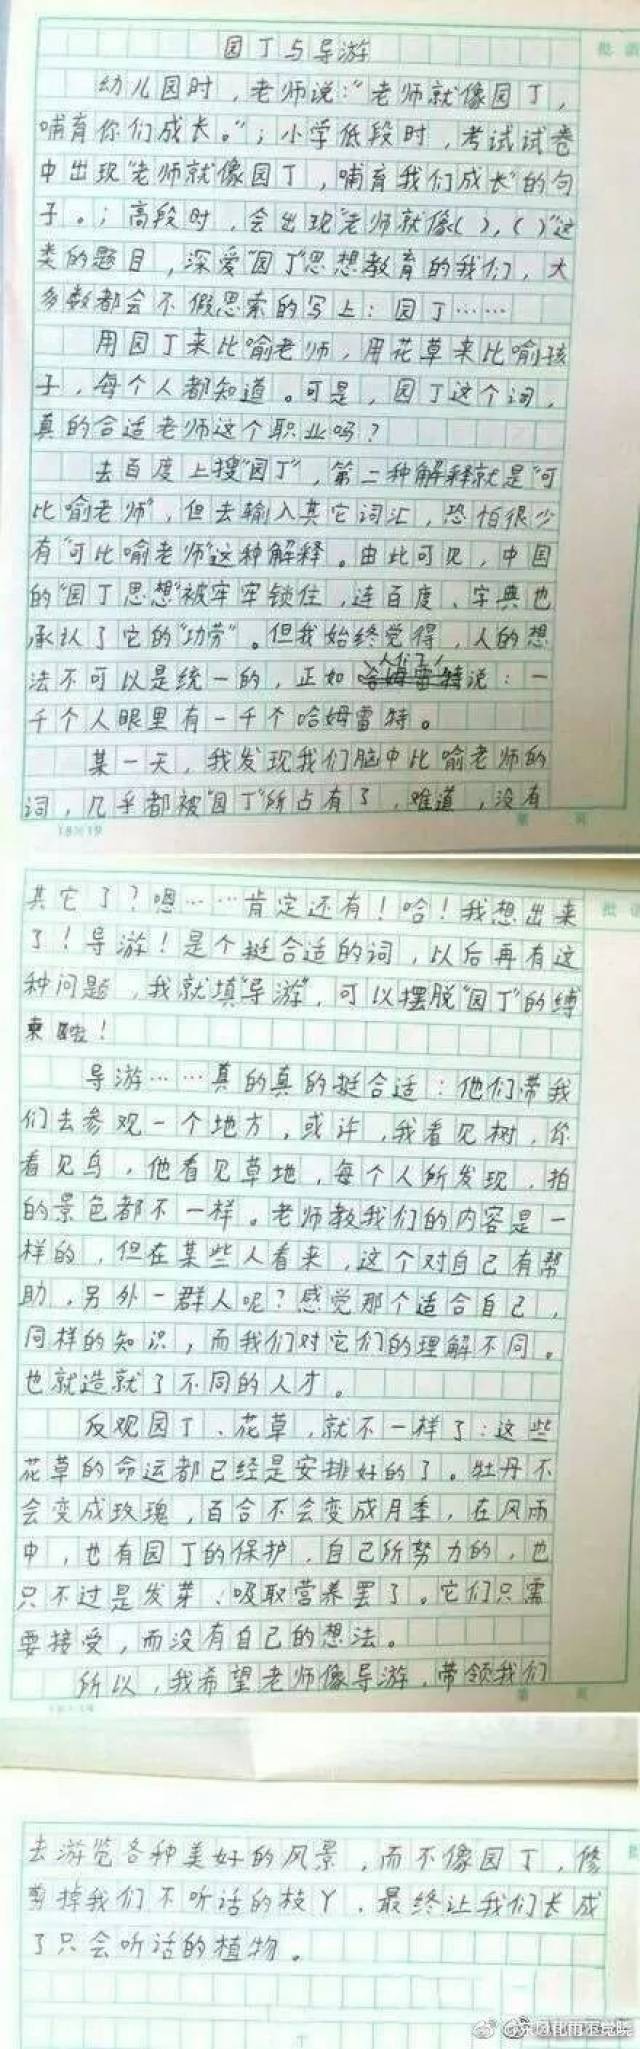 园丁与导游
幼儿园时，老师说：“老师就像园丁，
哺育你们成长。”；小学低段时，考试试卷
中出现“老师就像园丁，哺育我们成长”的句
子。；高段时，会出现“老师就像( )，( )”这
类的题目，深爱“园丁”思想教育的我们，大
多数都会不假思索的写上：园丁……
用园丁来比喻老师，用花草来比喻孩
子，每个人都知道。可是，园丁这个词，
真的合适老师这个职业吗？
去百度上搜“园丁”，第二种解释就是“可
比喻老师”，但去输入其它词汇，恐怕很少
有“可比喻老师”这种解释。由此可见，中国
的“园丁思想”被牢牢锁住，连百度、字典也
承认了它的“功劳”。但我始终觉得，人的想
法不可以是统一的，正如哈姆雷特说：一
千个人眼里有一千个哈姆雷特。
某一天，我发现我们脑中比喻老师的
词，几乎都被“园丁”所占有了，难道，没有
18×19
第 页
其它了？嗯……肯定还有！哈！我想出来
了！导游！是个挺合适的词，以后再有这
种问题，我就填“导游”，可以摆脱“园丁”的缚
束啦！
导游……真的真的挺合适：他们带我
们去参观一个地方，或许，我看见树，你
看见鸟，他看见草地，每个人所发现、拍
的景色都不一样。老师教我们的内容是一
样的，但在某些人看来，这个对自己有帮
助，另外一群人呢？感觉那个适合自己，
同样的知识，而我们对它们的理解不同。
也就造就了不同的人才。
反观园丁、花草，就不一样了：这些
花草的命运都已经是安排好的了。牡丹不
会变成玫瑰，百合不会变成月季，在风雨
中，也有园丁的保护，自己所努力的，也
只不过是发芽、吸取营养罢了。它们只需
要接受，而没有自己的想法。
所以，我希望老师像导游，带领我们
第 页
去游览各种美好的风景，而不像园丁，修
剪掉我们不听话的枝丫，最终让我们长成
了只会听话的植物。